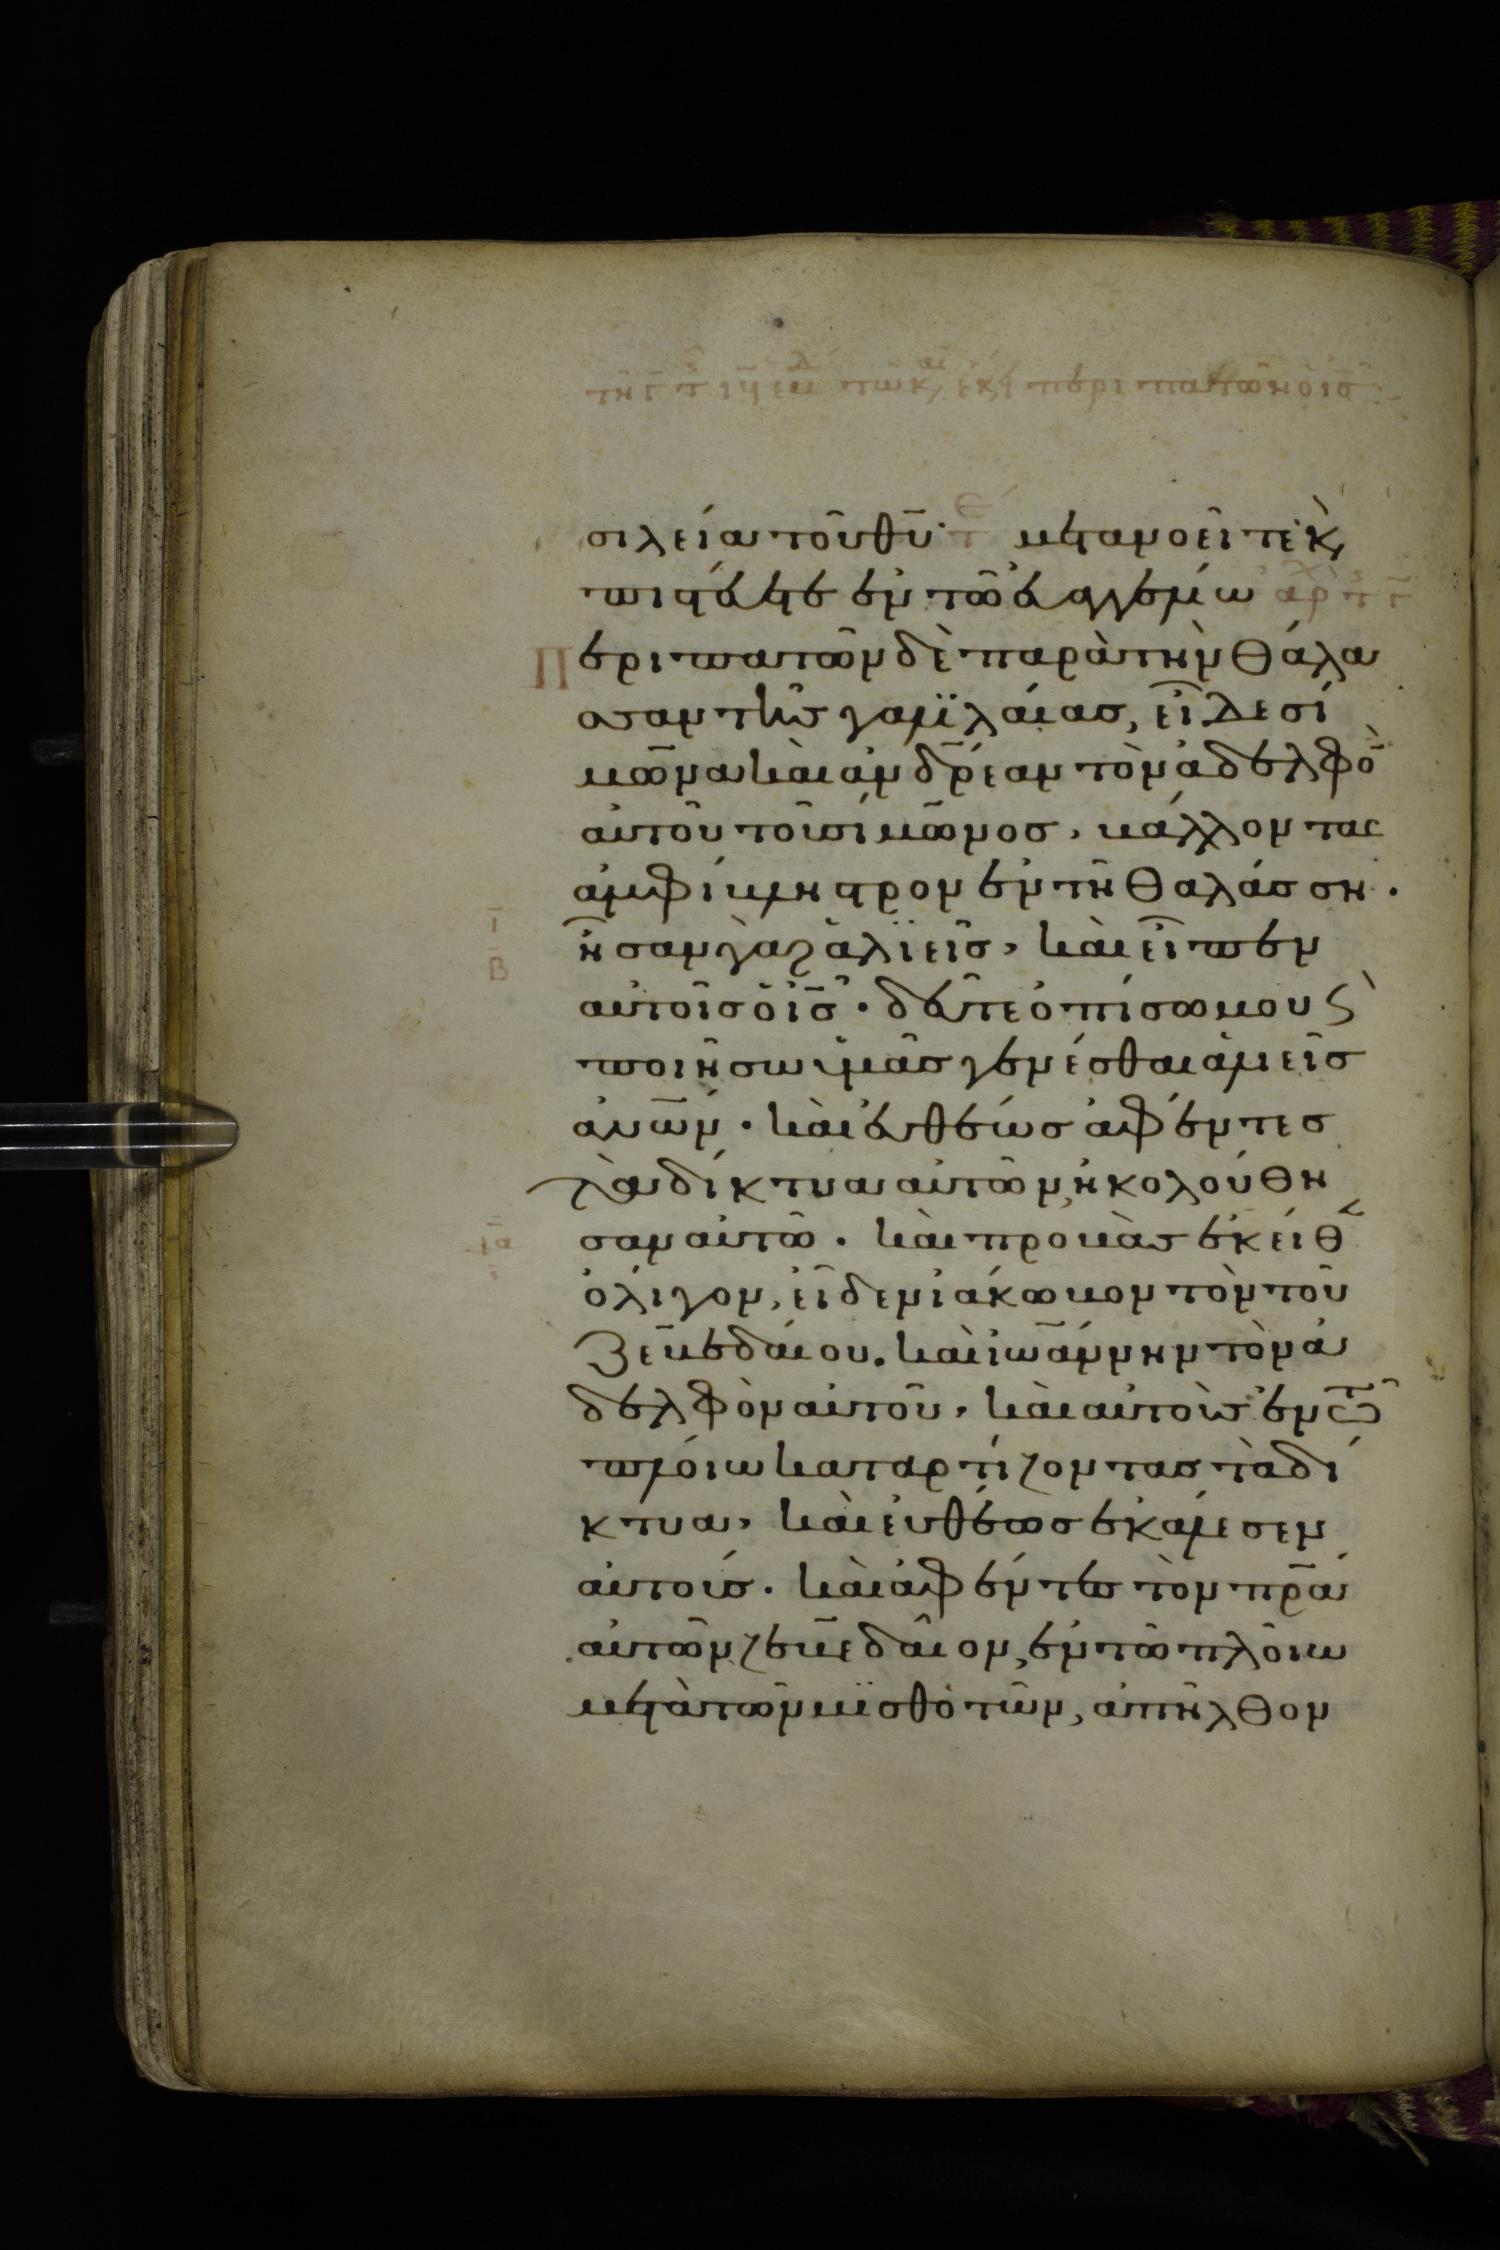 σιλεία τοῦ θῡ· μετανοεῖτε κ(αὶ)
πιστεύετε ἐν τῶ εὐαγγελίω
Περιπατῶν δὲ παρὰ τὴν θάλα
σσαν τῆς γαλιλαίας, εἶδε σί
μωνα καὶ ἀνδρέαν τὸν ἀδελφὸ̄
αὐτοῦ τοῦ σίμωνος, βάλλοντας
ἀμφίβληστρον ἐν τῆ θαλάσση.
ἦσαν γὰρ ἁλϊεῖς, καὶ εἶπεν
αὐτοῖς ὁ ῑς̄· δεῦτε ὀπίσω μου ϛ̀
ποιήσω ὑμᾶς γενέσθαι ἁλιεῖς
ἀν̄ων̄· καὶ εὐθέως ἀφέντες
τὰ δίκτυα αὐτῶν ἠκολούθη
σαν αὐτῶ. καὶ προβὰς ἐκεῖθ(εν)
ὀλίγον, εἶδεν ἰάκωβον τὸν τοῦ
Ζεβεδαίου. καὶ ἰωάννην τὸν ἀ
δελφὸν αὐτοῦ, καὶ αὐτοὺς ἐν τῶ
πλοίω καταρτίζοντας τὰ δί
κτυα, καὶ εὐθέως ἐκάλεσεν
αὐτούς. καὶ ἀφέντες τὸν πρ̄α
αὐτῶν ζεβεδαῖον, ἐν τῶ πλοίω
μετὰ τῶν μϊσθοτῶν, ἀπῆλθον
ῑ
β̄
ῑᾱ